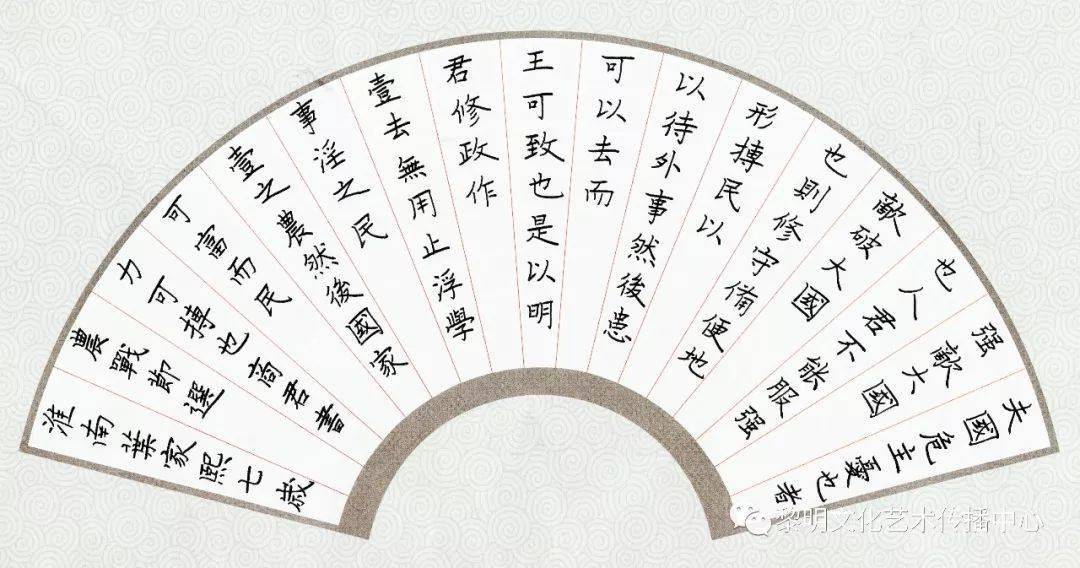 夫國危主憂也者
强敵大國
也人君不能服强
敵破大國
也則修守備便地
形摶民以
以待外事然後患
可以去而
王可致也是以明
君修政作
壹去無用止浮學
事淫之民
壹之農然後國家
可富而民
力可摶也商君書
農戰節選
淮南葉家熙七歲
黎明文化艺术传播中心